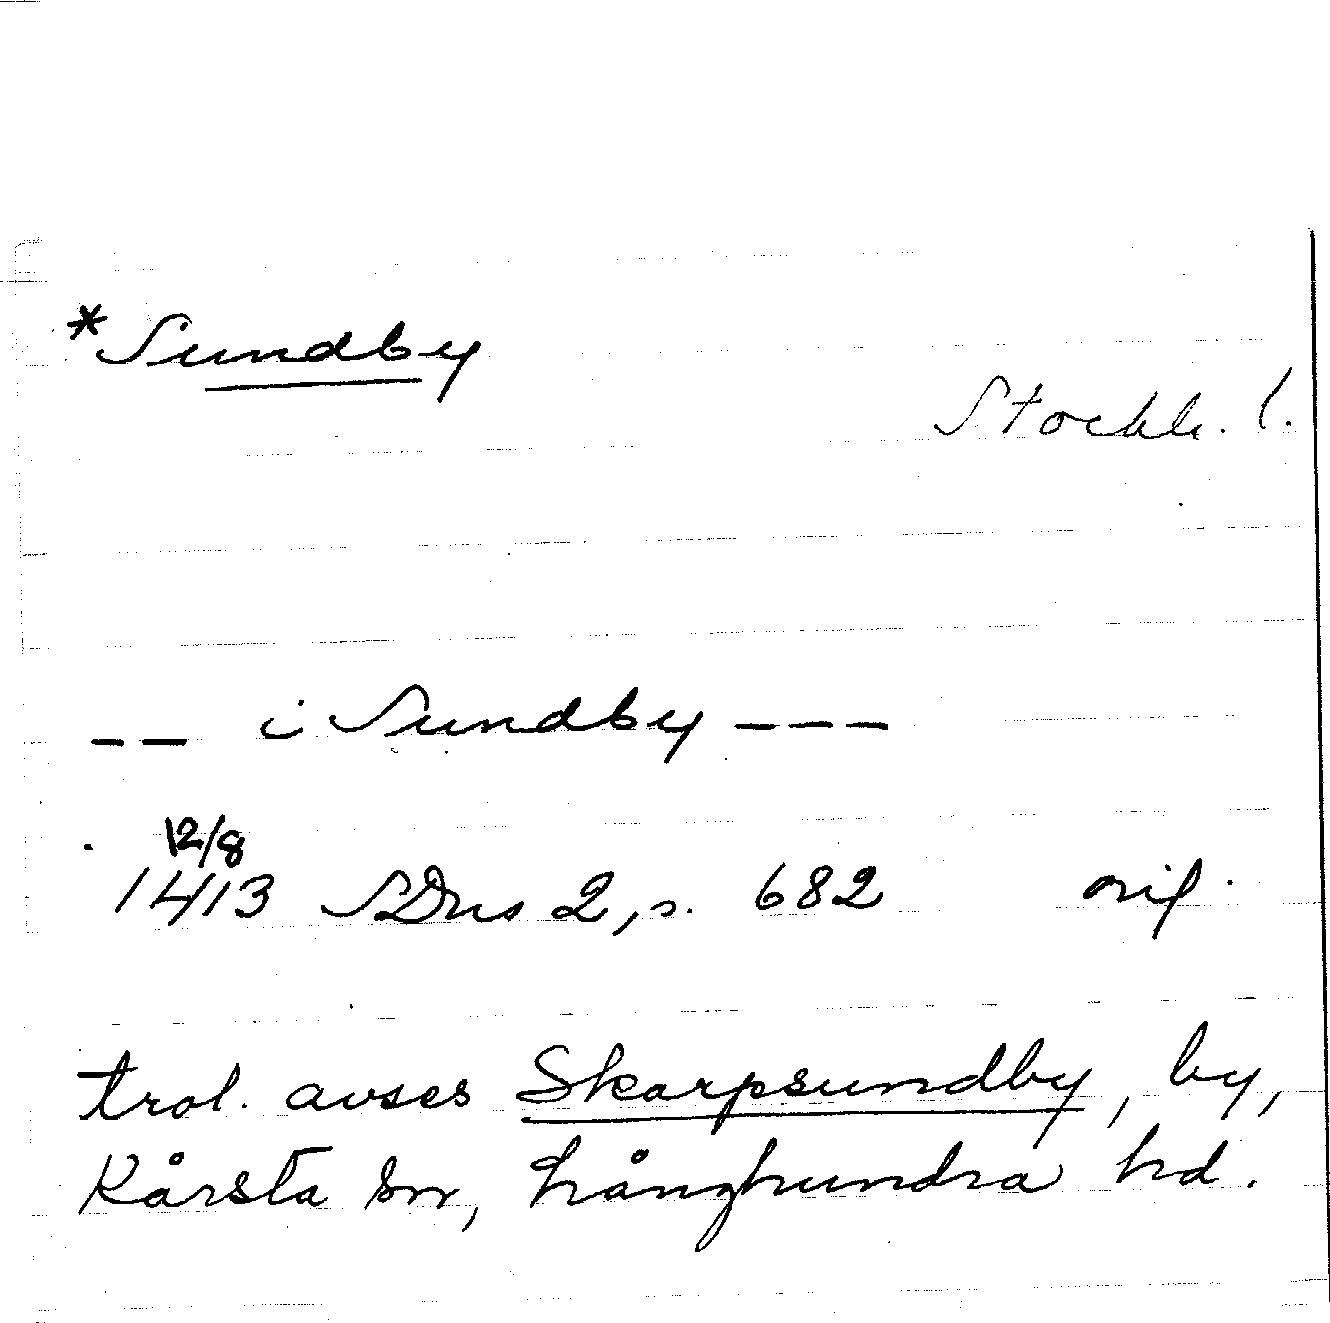 *Sundby
Stockh. l.
-- i Sundby ---
12/8
1413 SDns 2, s. 682 orig.
trol. avses Skarpsundby, by,
Kårsta sn, Långhundra hd.